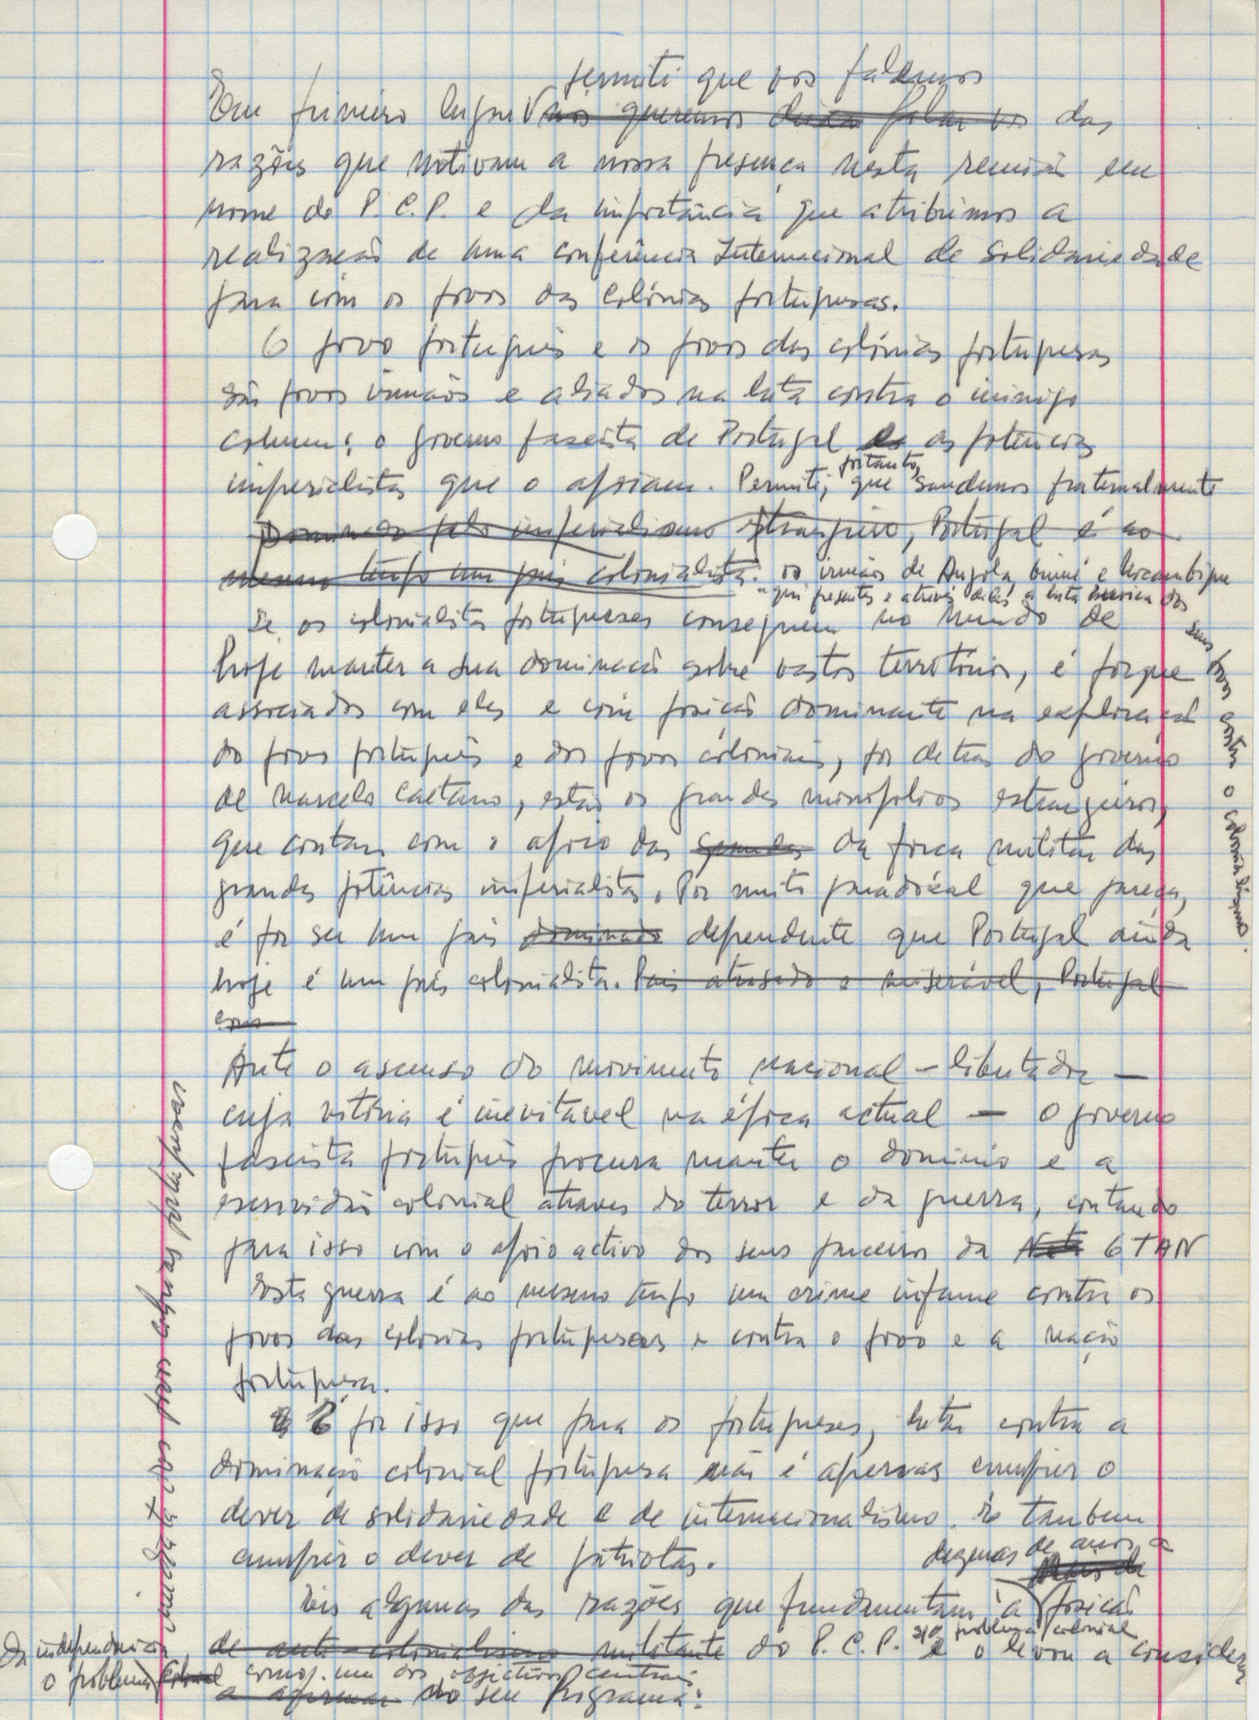 permiti que vos falemos
Em primeiro lugar nos queremos deixar falar vos das
razões que motivam a nossa presença nesta reunião em
nome do P.C.P. e da importância que atribuimos a
realização de uma conferência Internacional de Solidariedade
para com os povos das Colónias portuguesas.
O povo português e os povos das colónias portuguesas
são povos irmãos e aliados na luta contra o inimigo
comum: o governo fascista de Portugal e as potências
portanto,
imperialistas que o apoiam. Permiti, que saudemos fraternalmente
Dominado pelo imperialismo estrangeiro, Portugal é ao
mesmo tempo um país colonialista. os irmãos de Angola, Guiné e Moçambique
aqui presentes e através deles a luta heroica dos
seus povos contra o colonialismo.
Se os colonialistas portugueses conseguem no mundo de
hoje manter a sua dominação sobre vastos territórios, é porque
associados com eles e com posição dominante na exploração
do povo português e dos povos coloniais, por detras do governo
de Marcelo Caetano, estão os grandes monopólios estrangeiros,
que contam com o apoio das grandes da força militar das
grandes potências imperialistas. Por muito paradoxal que pareça,
é por ser um país dominado dependente que Portugal ainda
hoje é um país colonialista. País atrasado e miserável, Portugal
Ante o ascenso do movimento nacional-libertador —
cuja vitória é inevitavel na época actual — o governo
fascista português procura manter o dominio e a
escravidão colonial atraves do terror e da guerra, contando
para isso com o apoio activo dos seus parceiros da Nato OTAN
Esta guerra é ao mesmo tempo um crime infame contra os
povos das colonias portuguesas e contra o povo e a nação
portuguesa.
É por isso que para os portugueses, lutar contra a
dominação colonial portuguesa não é apenas cumprir o
dever de solidariedade e de internacionalismo. É tambem
cumprir o dever de patriotas.
dezenas de anos
mais de
Eis algumas das razões que fundamentam a posição
problema colonial
de anti-colonialismo militante do P.C.P. e o levou a considerar
da independencia
o problema colonial como um dos objectivos centrais
a afirmar do seu Programa: